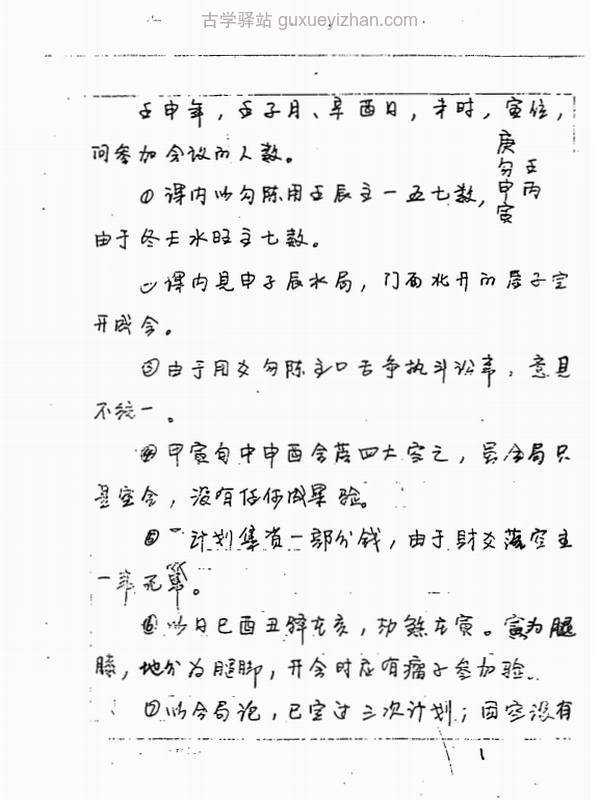 古学驿站 guxueyizhan.com
壬申年，壬子月、辛酉日，未时，寅位，
问参加会议的人数。
庚 勾申 寅
壬丙
①课内以勾陈用壬辰主一五七数，
由于冬壬水旺主七数。
课内见申子辰水局，门面北开的房子定
开成会。
③由于用爻勾陈主口舌争执斗讼事，意见
不统一。
④甲寅旬中申酉金落四大空亡，虽合局只
是空会，没有任何成果验。
⑤计划集资一部分钱，由于财爻落空主
一笔死
⑥以日巳酉丑驿在亥，劫煞在寅。寅为腿
膝，地分为腿脚，开会时应有瘸子参加验
⑦以合局论，已定过三次计划；因空没有
1